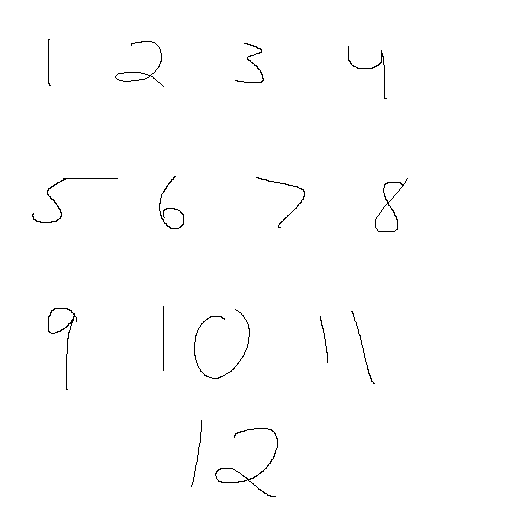 1 2 3 4
5 6 7 8
9 10 11
12